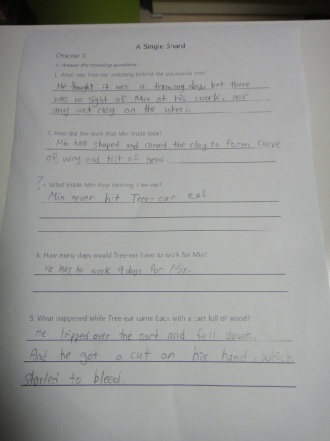 A Single Shard
Chapter 2
A. Answer the following questions.
1. What was Tree-ear watching behind the paulownia tree?
He thought it was a throwing day, but there
was no sight of Min at his work, nor
any wet clay on the wheel.
2. How did the duck that Min made look?
Min had shaped and carved the clay to form curve
of wing and tilt of head.
?
3. What made Min stop hitting Tree-ear?
Min never hit Tree-ear
4. How many days would Tree-ear have to work for Min?
He has to work 9 days for Min.
5. What happened while Tree-ear came back with a cart full of wood?
He tripped over the cart and fell down.
And he got a cut on his hand, which
started to bleed.